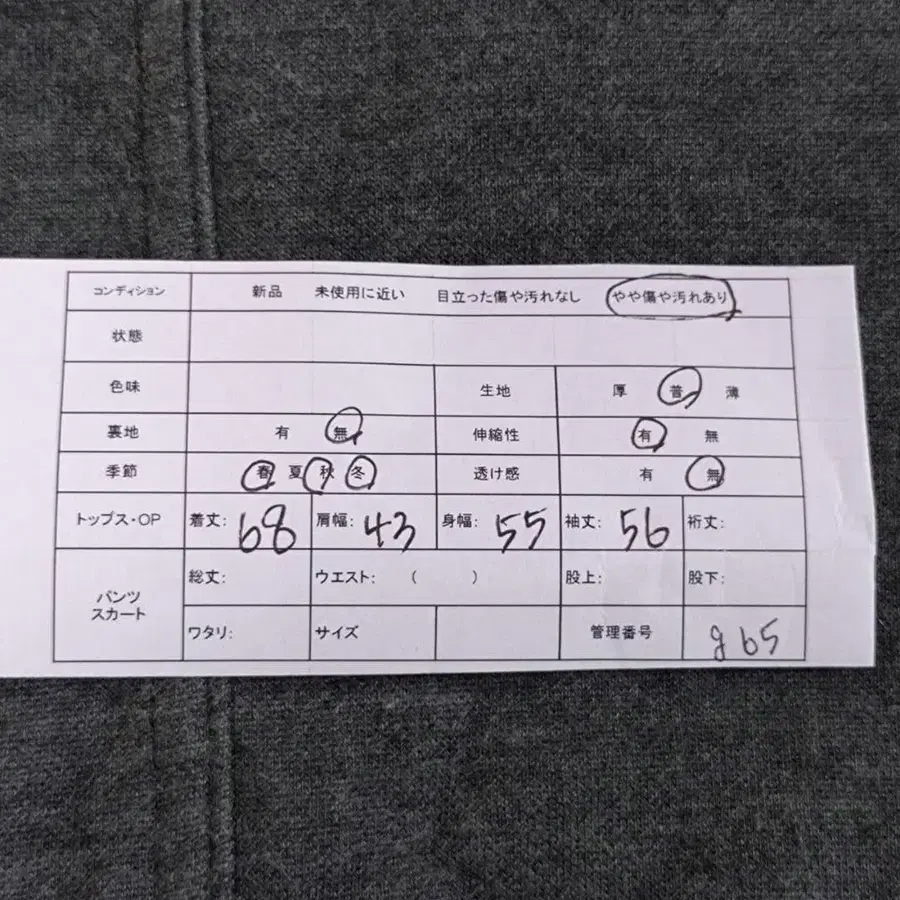 コンディション 新品 未使用に近い 目立った傷や汚れなし やや傷や汚れあり
状態
色味 生地 厚 普 薄
裏地 有 無 伸縮性 有 無
季節 春 夏 秋 冬 透け感 有 無
トップス・OP 着丈: 68 肩幅: 43 身幅: 55 袖丈: 56 裄丈:
パンツ スカート 総丈: ウエスト: ( ) 股上: 股下:
ワタリ: サイズ 管理番号 g65